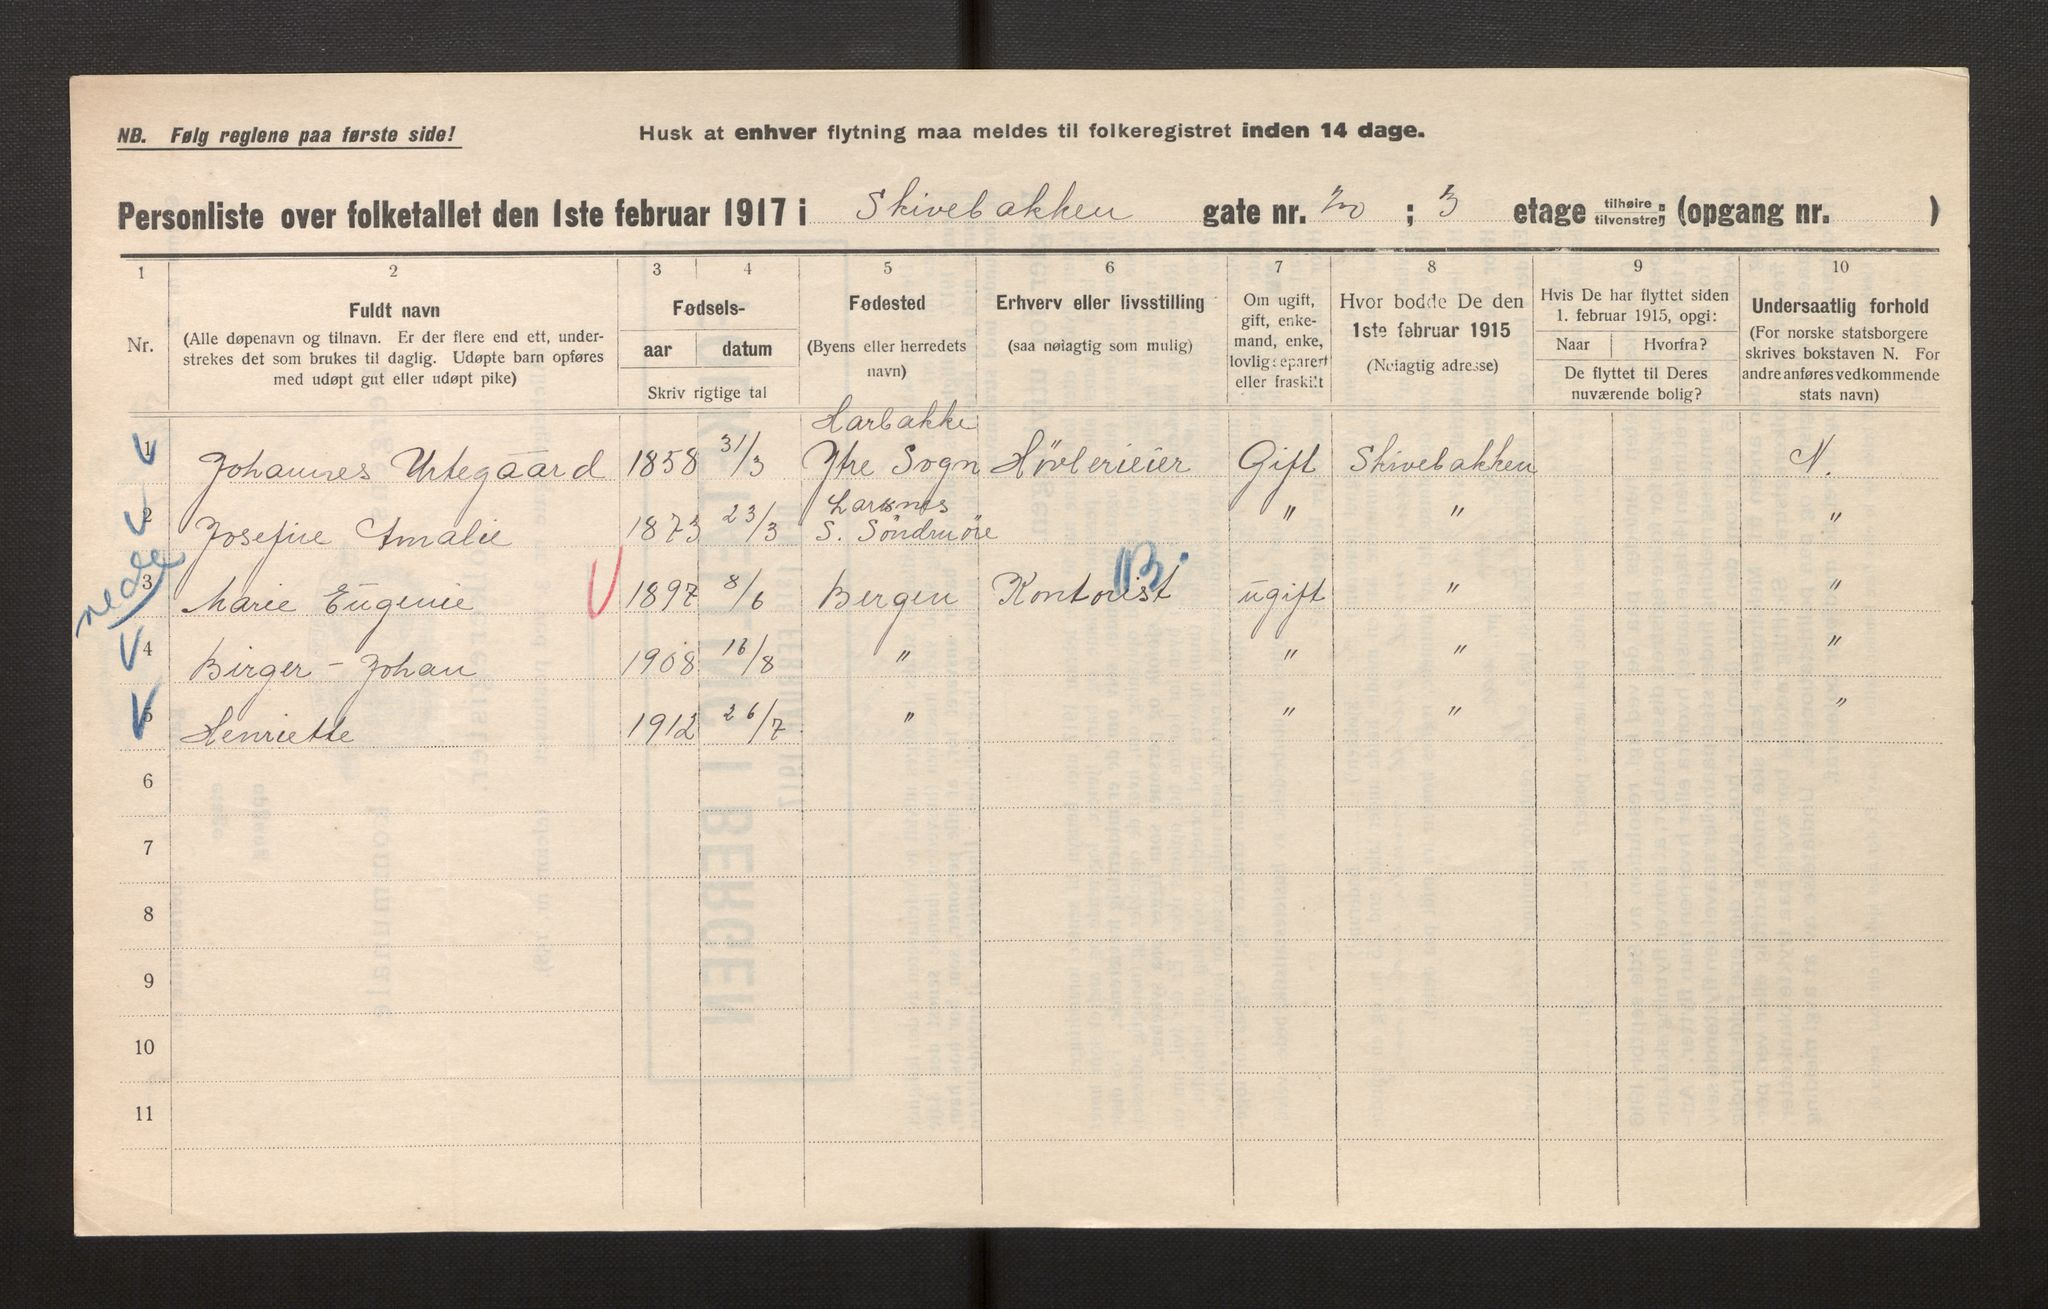 NB. Følg reglene paa første side!
Husk at enhver flytning maa meldes til folkeregistret inden 14 dage.
Personliste over folketallet den 1ste februar 1917 i Skivebakken gate nr. 20 ; 3 etage tilhøire tilvenstre (opgang nr. )
1 2 3 4 5 6 7 8 9 10
Nr.
Fuldt navn
(Alle døpenavn og tilnavn. Er der flere end ett, under-
strekes det som brukes til daglig. Udøpte barn opføres
med udøpt gut eller udøpt pike)
Fødsels-
aar datum
Skriv rigtige tal
Fødested
(Byens eller herredets
navn)
Erhverv eller livsstilling
(saa nøiagtig som mulig)
Om ugift,
gift, enke-
mand, enke,
lovlig separert
eller fraskilt
Hvor bodde De den
1ste februar 1915
(Nøiagtig adresse)
Hvis De har flyttet siden
1. februar 1915, opgi:
Naar Hvorfra?
De flyttet til Deres
nuværende bolig?
Undersaatlig forhold
(For norske statsborgere
skrives bokstaven N. For
andre anføres vedkommende
stats navn)
Harbakke
1 Johannes Urtegaard 1858 31/3 Ytre Sogn Høvlerieier Gift Skivebakken N.
Larsnes
2 Josefine Amalie 1873 23/3 S. Söndmöre " " "
nede
3 Marie Eugenie 1897 8/6 Bergen Kontorist B. ugift " "
4 Birger - Johan 1908 16/8 " " " "
5 Henriette 1912 26/7 " " " "
6
7
8
9
10
11